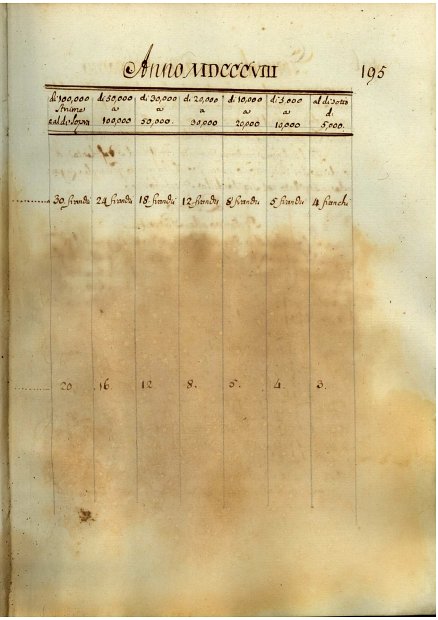 Anno MDCCCVIII 195
di 100,000 di 50,000 di 30,000 di 20,000 di 10,000 di 5,000 al di sotto
Anime a a a a a di
e al di sopra 100,000 50,000. 30,000 20,000 10,000 5,000.
30 franchi 24 franchi 18 franchi 12 franchi 8 franchi 5 franchi 4 franchi
20. 16. 12. 8. 5. 4. 3.